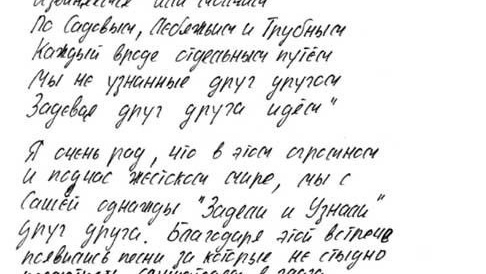 Извиняемся или молчим
По Садовым, Лебяжьим и Трубным
Каждый вроде отдельным путём
Мы не узнанные друг другом
Задевая друг друга идём"
Я очень рад, что в этом огромном
и подчас жестоком мире, мы с
Сашей однажды "Задели и Узнали"
друг друга. Благодаря этой встрече
появились песни за которые не стыдно